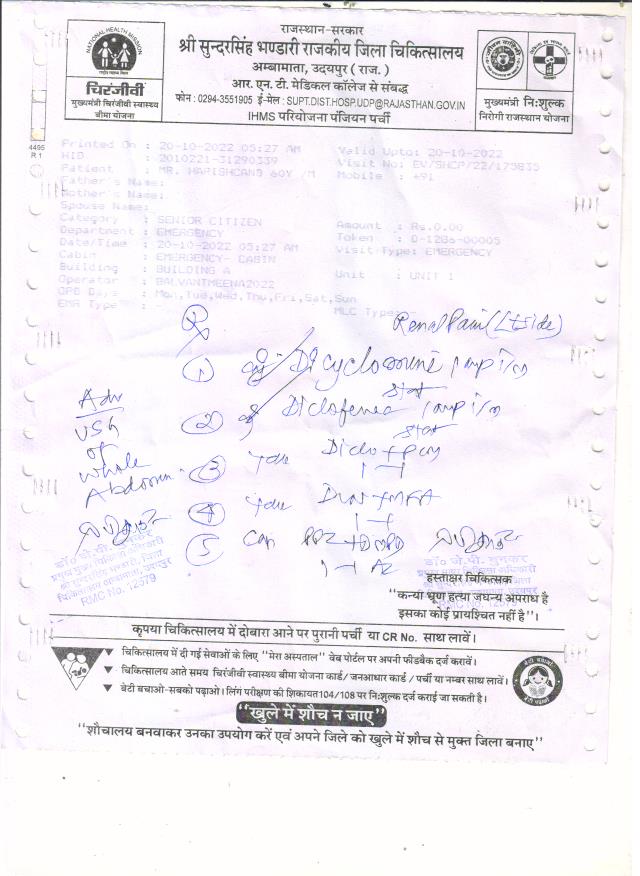 राजस्थान-सरकार
श्री सुन्दरसिंह भण्डारी राजकीय जिला चिकित्सालय
अम्बामाता, उदयपुर ( राज. )
आर. एन. टी. मेडिकल कॉलेज से संबद्ध
फोन : 0294-3551905 ई-मेल : SUPT.DIST.HOSP.UDP@RAJASTHAN.GOV.IN
IHMS परियोजना पंजियन पर्ची
NATIONAL HEALTH MISSION
चिरंजीवी
मुख्यमंत्री चिरंजीवी स्वास्थ्य
बीमा योजना
मुख्यमंत्री नि:शुल्क
निरोगी राजस्थान योजना
4495
R.1
Printed On : 20-10-2022 05:27 AM Valid Upto: 20-10-2022
HID : 2010221-31290339 Visit No: EV/SHCP/22/175835
Patient : MR. HARISHCAND 60Y /M Mobile : +91
Father's Name:
Mother's Name:
Spouse Name:
Category : SENIOR CITIZEN Amount : Rs.0.00
Department : EMERGENCY Token : D-1286-00005
Date/Time : 20-10-2022 05:27 AM Visit Type: EMERGENCY
Cabin : EMERGENCY- CABIN
Building : BUILDING A Unit : UNIT 1
Operator : BALVANTMEENA2022
OPD Days : Mon,Tue,Wed,Thu,Fri,Sat,Sun
EMR Type : - MLC Type:-
Rx
Renal Pain (Lt side)
① Dicyclomine 1 amp i/m
stat
② Diclofenac 1 amp i/m
stat
③ Diclo + pcm
④
⑤ Cap
Adv
USG
of
Whole
Abdomen
डॉ० जे.पी. बुनकर
RMC No. 12579
डॉ० जे.पी. बुनकर
RMC No. 12579
हस्ताक्षर चिकित्सक
"कन्या भ्रूण हत्या जधन्य अपराध है
इसका कोई प्रायश्चित नहीं है"।
कृपया चिकित्सालय में दोबारा आने पर पुरानी पर्ची या CR No. साथ लावें।
▼ चिकित्सालय में दी गई सेवाओं के लिए "मेरा अस्पताल" वेब पोर्टल पर अपनी फीडबैक दर्ज करावें।
▼ चिकित्सालय आते समय चिरंजीवी स्वास्थ्य बीमा योजना कार्ड/ जनआधार कार्ड / पर्ची या नम्बर साथ लावें।
▼ बेटी बचाओ-सबको पढ़ाओ। लिंग परीक्षण की शिकायत 104/108 पर नि:शुल्क दर्ज कराई जा सकती है।
"खुले में शौच न जाए"
"शौचालय बनवाकर उनका उपयोग करें एवं अपने जिले को खुले में शौच से मुक्त जिला बनाए"